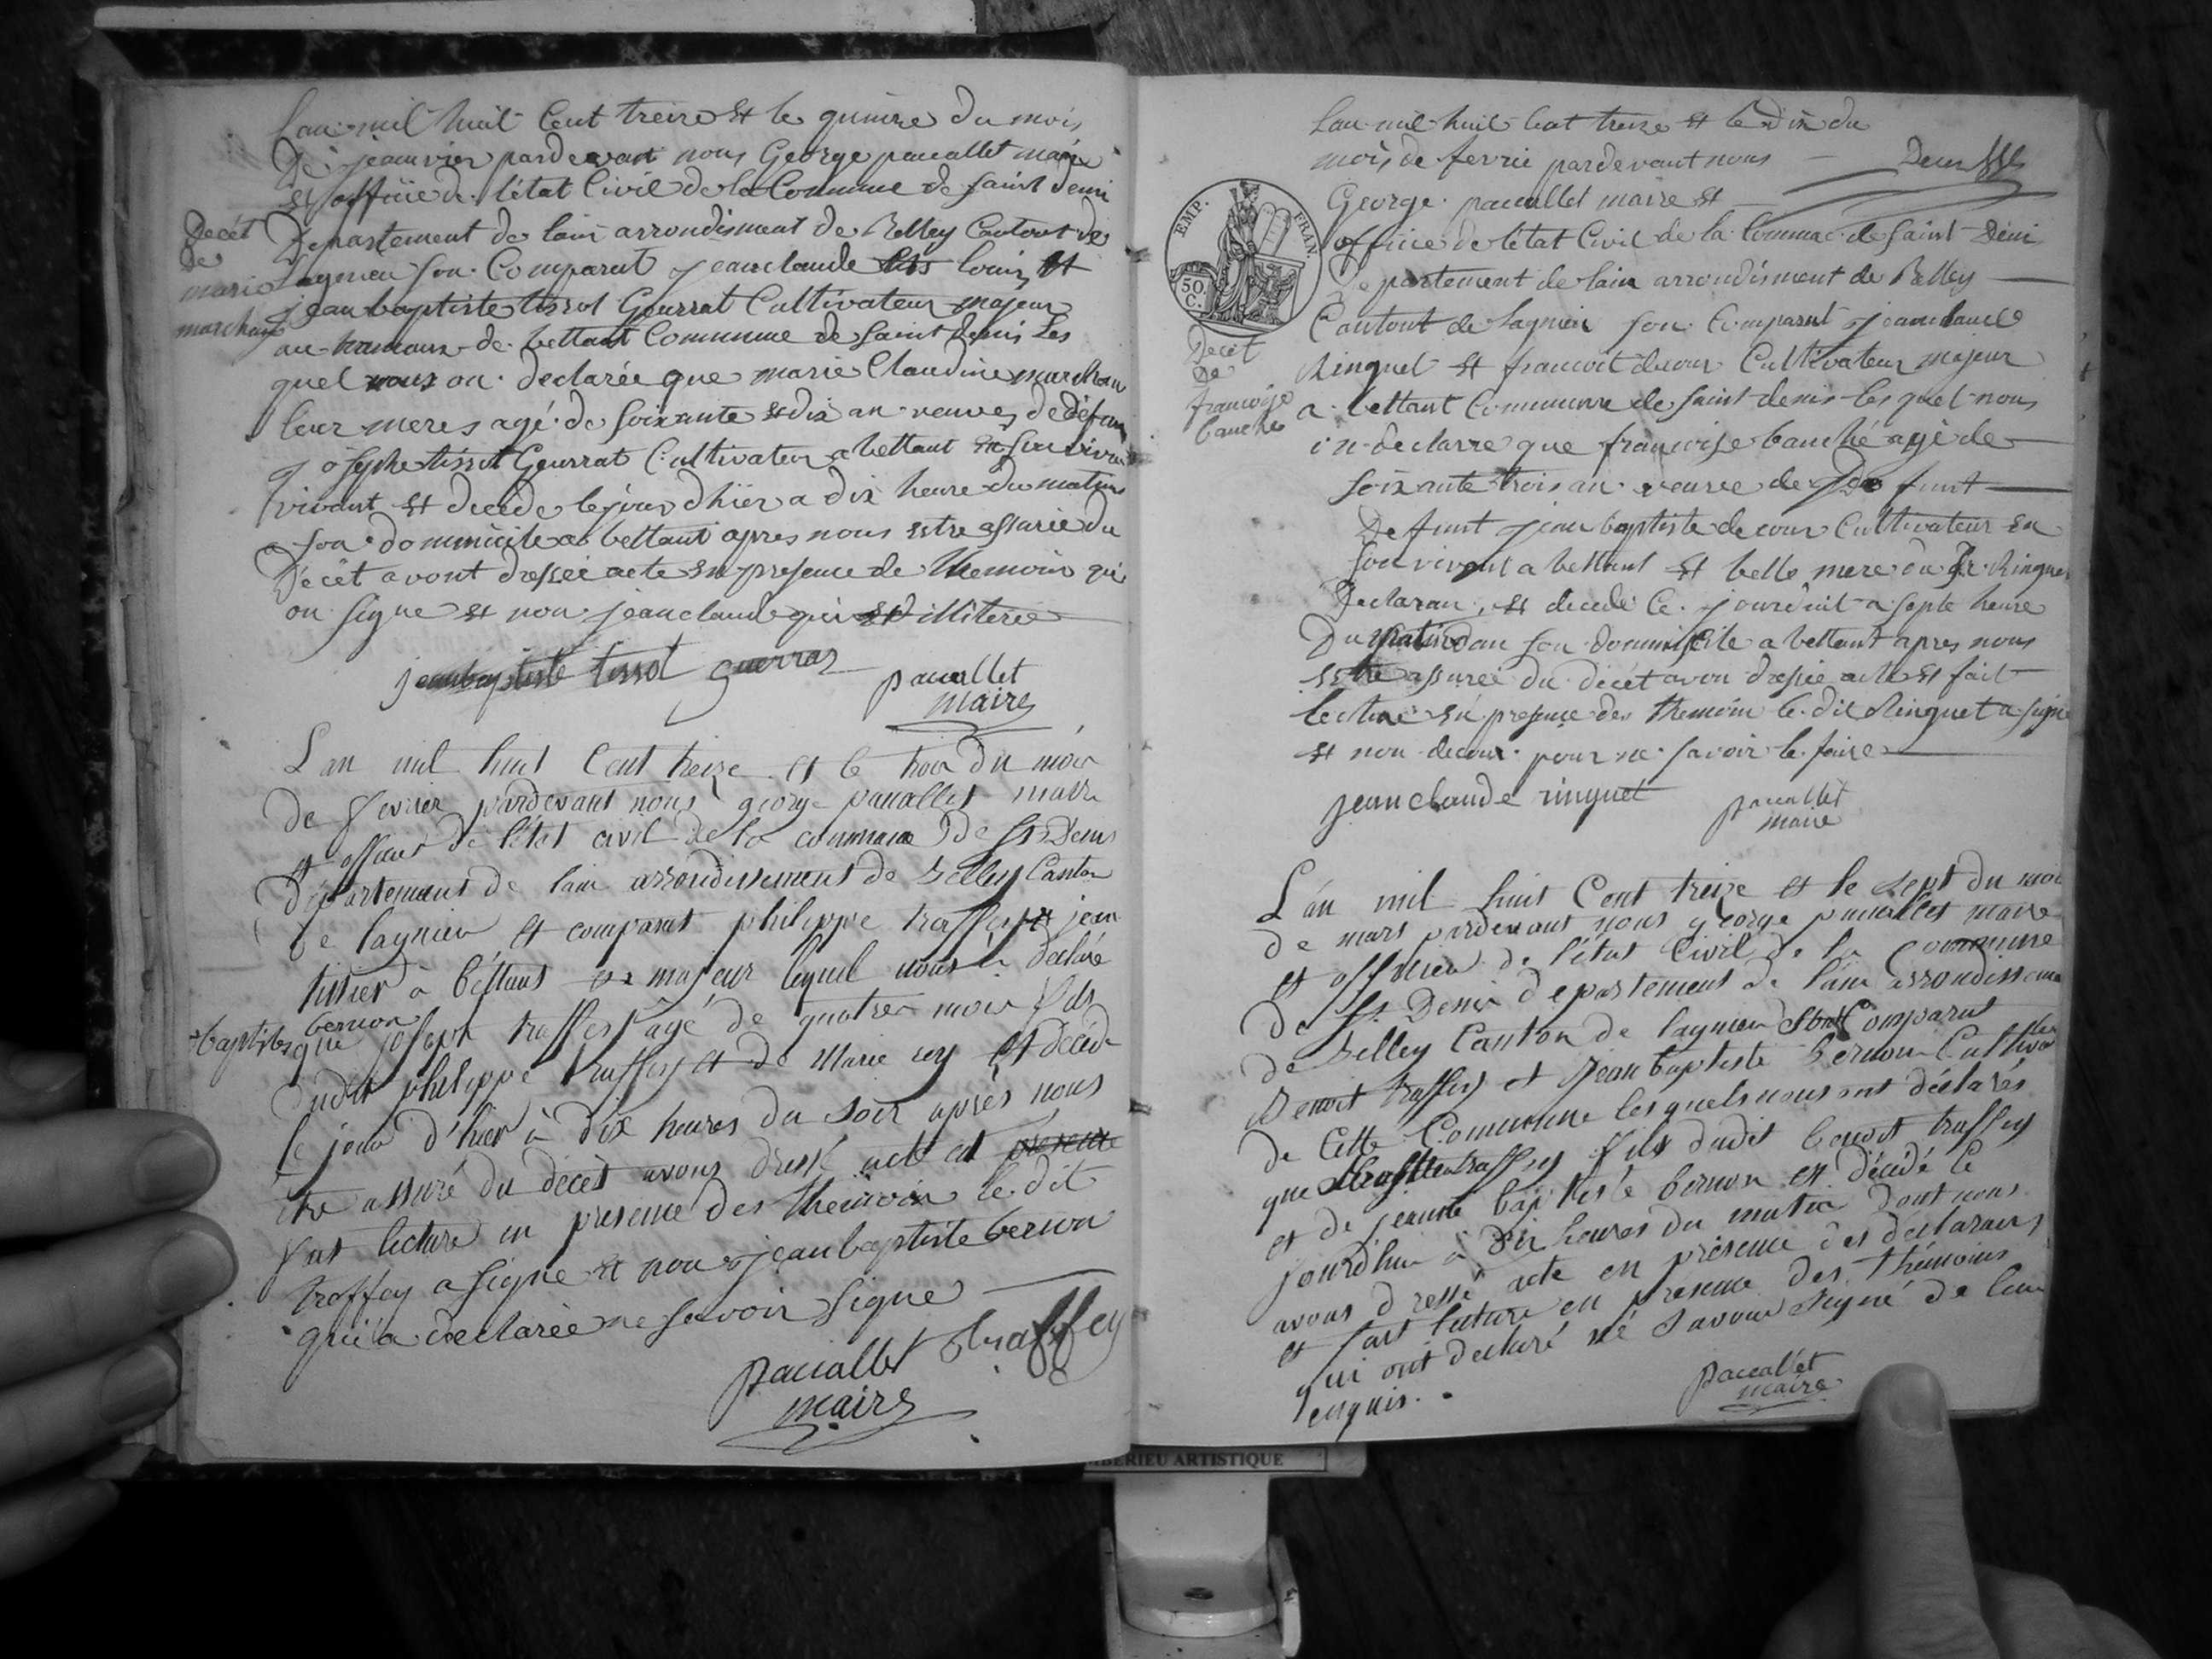 Lan mil huil Cent treize et le quinze du mois
De jeanvier pardevant nous George paucallet maire
et officie de l'état Civil de la Commune de saint denis
Decét
de
marie
marchan
Departement de lain arrondisment de Belley Cantont de
Lagnieu son Comparut jeanclaude louis et
jean baptiste tissot Gourrat Cultivateur majeur
au hamaux de bettant Commune de saint denis Les
quel nous on declarée que marie Claudine marchan
leur meres agé de soixante et dix an veuves de défun
josephe tissot Gourrat Cultivateur a bettant en son vivan
vivant et decede le jour dhier a dix heure du matins
a son dommicile a bettant apres nous estre assurée du
Décét avont dressée acte en presence de themoin qui
on signe et non jeanclaude qui est illiterée
jeanbaptiste tissot guerraz
paucallet
maire
L'an mil huit Cent treize et le trois du mois
de fevrier pardevant nous george paucallet maire
et officier de l'état civil de la commune de St Denis
Département de lain arrondissement de Belley Canton
de lagnieu et comparut philippe traffey et jean
*baptiste bernon
tissier à béttant majeur lequel nous a déclaré
que joseph traffey agé de quatre mois fils
dudit philippe traffey et de Marie rey est décédé
le jour d'hier à dix heures du soir après nous
etre assuré du décès avons dressé acte et
fait lecture en presence des themoin le dit
traffey a signe et non jeanbaptiste bernon
qui a declarée ne savoir signe
paucallet traffey
maire
Lan mil huil Cent treize et le dix du
mois de fevrie pardevant nous
George paucallet maire et
EMP. FRAN.
50
C.
officie de l'état Civil de la Commune de saint Deni
Departement de lain arrondisment de Belley
Cantont de Lagnieu son Comparut jeanclaude
Decét
De
francoise
bauché
Ringuet et francoit decour Cultivateur majeur
a bettant Commune de saint denis les quel nous
on declarre que francoise bauché agé de
soixante trois an veuve de
Defunt jean baptiste decour Cultivateur en
son vivant a bettant et belle mere du Ringuet
Declaran, et decede Ce jourduit a septe heure
Du matin dan son dommicile a bettant apres nous
estre assurée du décét avon dressée acte et fait
lecture en presence des themoin le dit Ringuet a signe
et non decour pour ne savoir le faire
jean claude ringuet
paucallet
maire
L'an mil huit Cent treize et le sept du mois
de mars pardevant nous george paucallet maire
et officier de l'état Civil de la Commune
de St Denis departement de l'ain arrondisseme
de Belley Canton de lagnieu sont Comparut
Benoit traffey et Jean baptiste Bernon Cultiva
de Cette Commune lesquels nous ont déclarés
que traffey fils dudit benoit traffey
et de jeanne baptiste bernon est décédé le
jourdhui à dix heures du matin dont nous
avons dressé acte en présence des déclarans
et fait lecture en presence des thémoins
qui ont declaré né savoir signé de leur
enquis.
paucallet
maire
BERIEU ARTISTIQUE